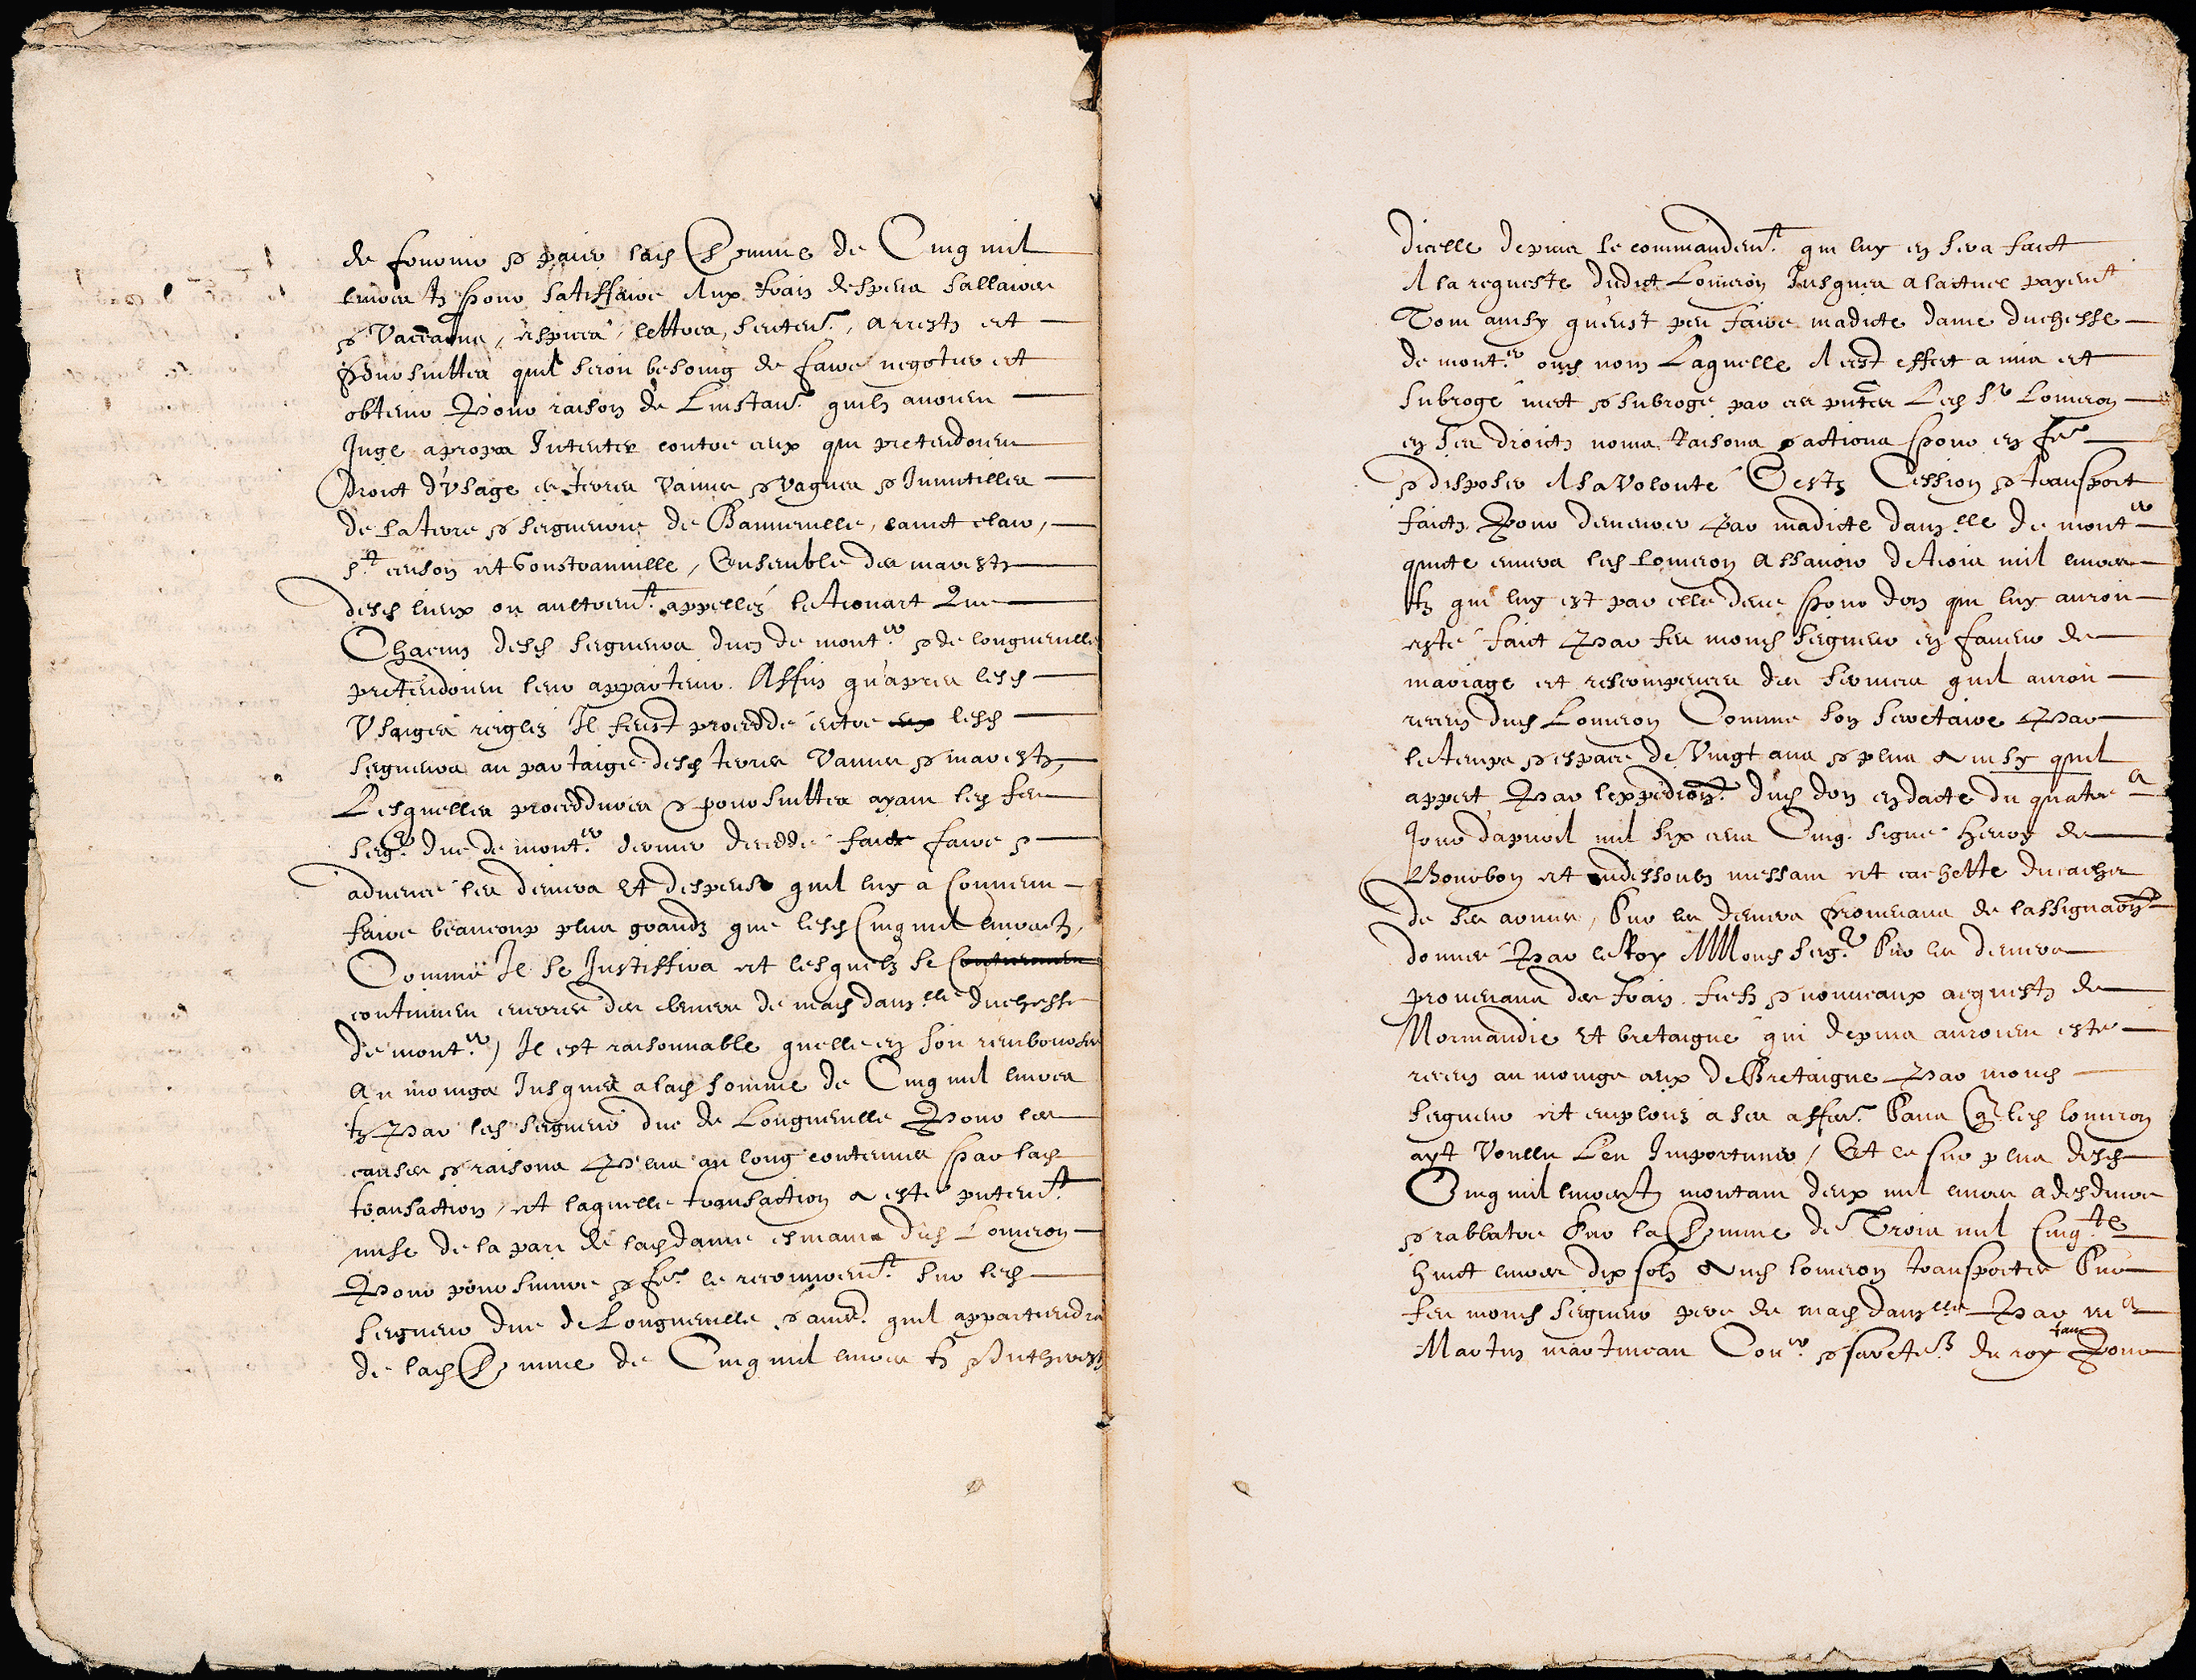 de fournir & paier lad somme de Cinq mil
livres tz pour satisffaire aux frais despens sallaires
& vaccations, espices, lettres, senten., arrestz et
poursuittes quil seroit besoing de faire negotier et
obtenir Pour raison de Linstan. quilz avoient
Juge apropos Intenter contre ceux qui pretendoient
droict d'usage es terres vaines & vagues & Innutilles
de la terre & seigneurie de Banneville, sainct clair,
st ... et Goustranville, Ensemble des marestz
desd lieux ou aultrent appellez le trouart Que
Chacun desd seigneurs ducz de montr & de longueville
pretendoient leur appartenir. Affin qu'apres lesd
Usaiges reiglez Il feust proceddé entre lesd
seigneurs au partaige desd terres vaines & marestz,
Lesquelles proceddures & poursuittes ayant led feu
seigr duc de montr dernier deceddé faict faire &
advencé les deniers Et despense quil luy a convenu
faire beaucoup plus grandz que lesd Cinq mil livres tz,
Comme Il se Justiffira et lesquelz se
continuent encores des deniers de mad damlle duchesse
de montr, Il est raisonnable quelle en soit remboursee
Au moings Jusques a lad somme de Cinq mil livres
tz Par led seigneur duc de Longueville Pour les
causes & raisons Plus au long contenues par lad
transaction, et laquelle transaction a esté pntent
mise de la part de lad dame es mains dud Lomeron
Pour poursuivre & fre le recouvrent sur led
seigneur duc de Longueville & aure quil appartiendra
de lad somme de Cinq mil livres tz & Interestz
dicelle depuis le commandent qui luy en sera faict
A la requeste dudict Lomeron Jusques a lactuel payent
Tout ainsy qu'eust peu faire madicte dame duchesse
de montr oud nom Laquelle A cest effect a mis et
subrogé met & subroge par ces pntes Led Sr Lomeron
en ses droictz noms raisons & actions pour en fre
& disposer A sa volonté Cestz Cession & transport
faictz Pour demeurer Par madicte damlle de montr
quicte envers led Lomeron Assavoir de trois mil livres
tz qui luy est par elle deue pour don qui luy auroit
esté faict Par feu mond seigneur en faveur de
mariage et rescompences des services quil auroit
receuz dud Lomeron Comme son secretaire Par
le temps & espace de Vingt ans & plus Ainsy quil
appert Par lexpedion dud don en datte du quatre
Jour d'apvril mil six cens Cinq. signé Henry de
Bourbon et audessoubz messant et cachetté du cachet
de ses armes, Sur les deniers provenans de lassignaon
donnee Par le Roy A Mond seigr Sur les deniers
provenans des frais. fiefz & nouveaux acquestz de
Normandie Et bretaigne qui depuis auroient esté
receuz au moings ceux de Bretaigne Par mond
seigneur et emploiez a ses affers Sans q led lomeron
ayt voullu Len Importuner, Et le sur plus desd
Cinq mil livres tz montant deux mil livres a desduire
& rabbatre sur la somme de Trois mil Cinqte
huict livres dix solz Aud lomeron transportee Sur
feu mond seigneur pere de mad damlle Par me
Martin martineau Conr & secrete du roy tant Pour